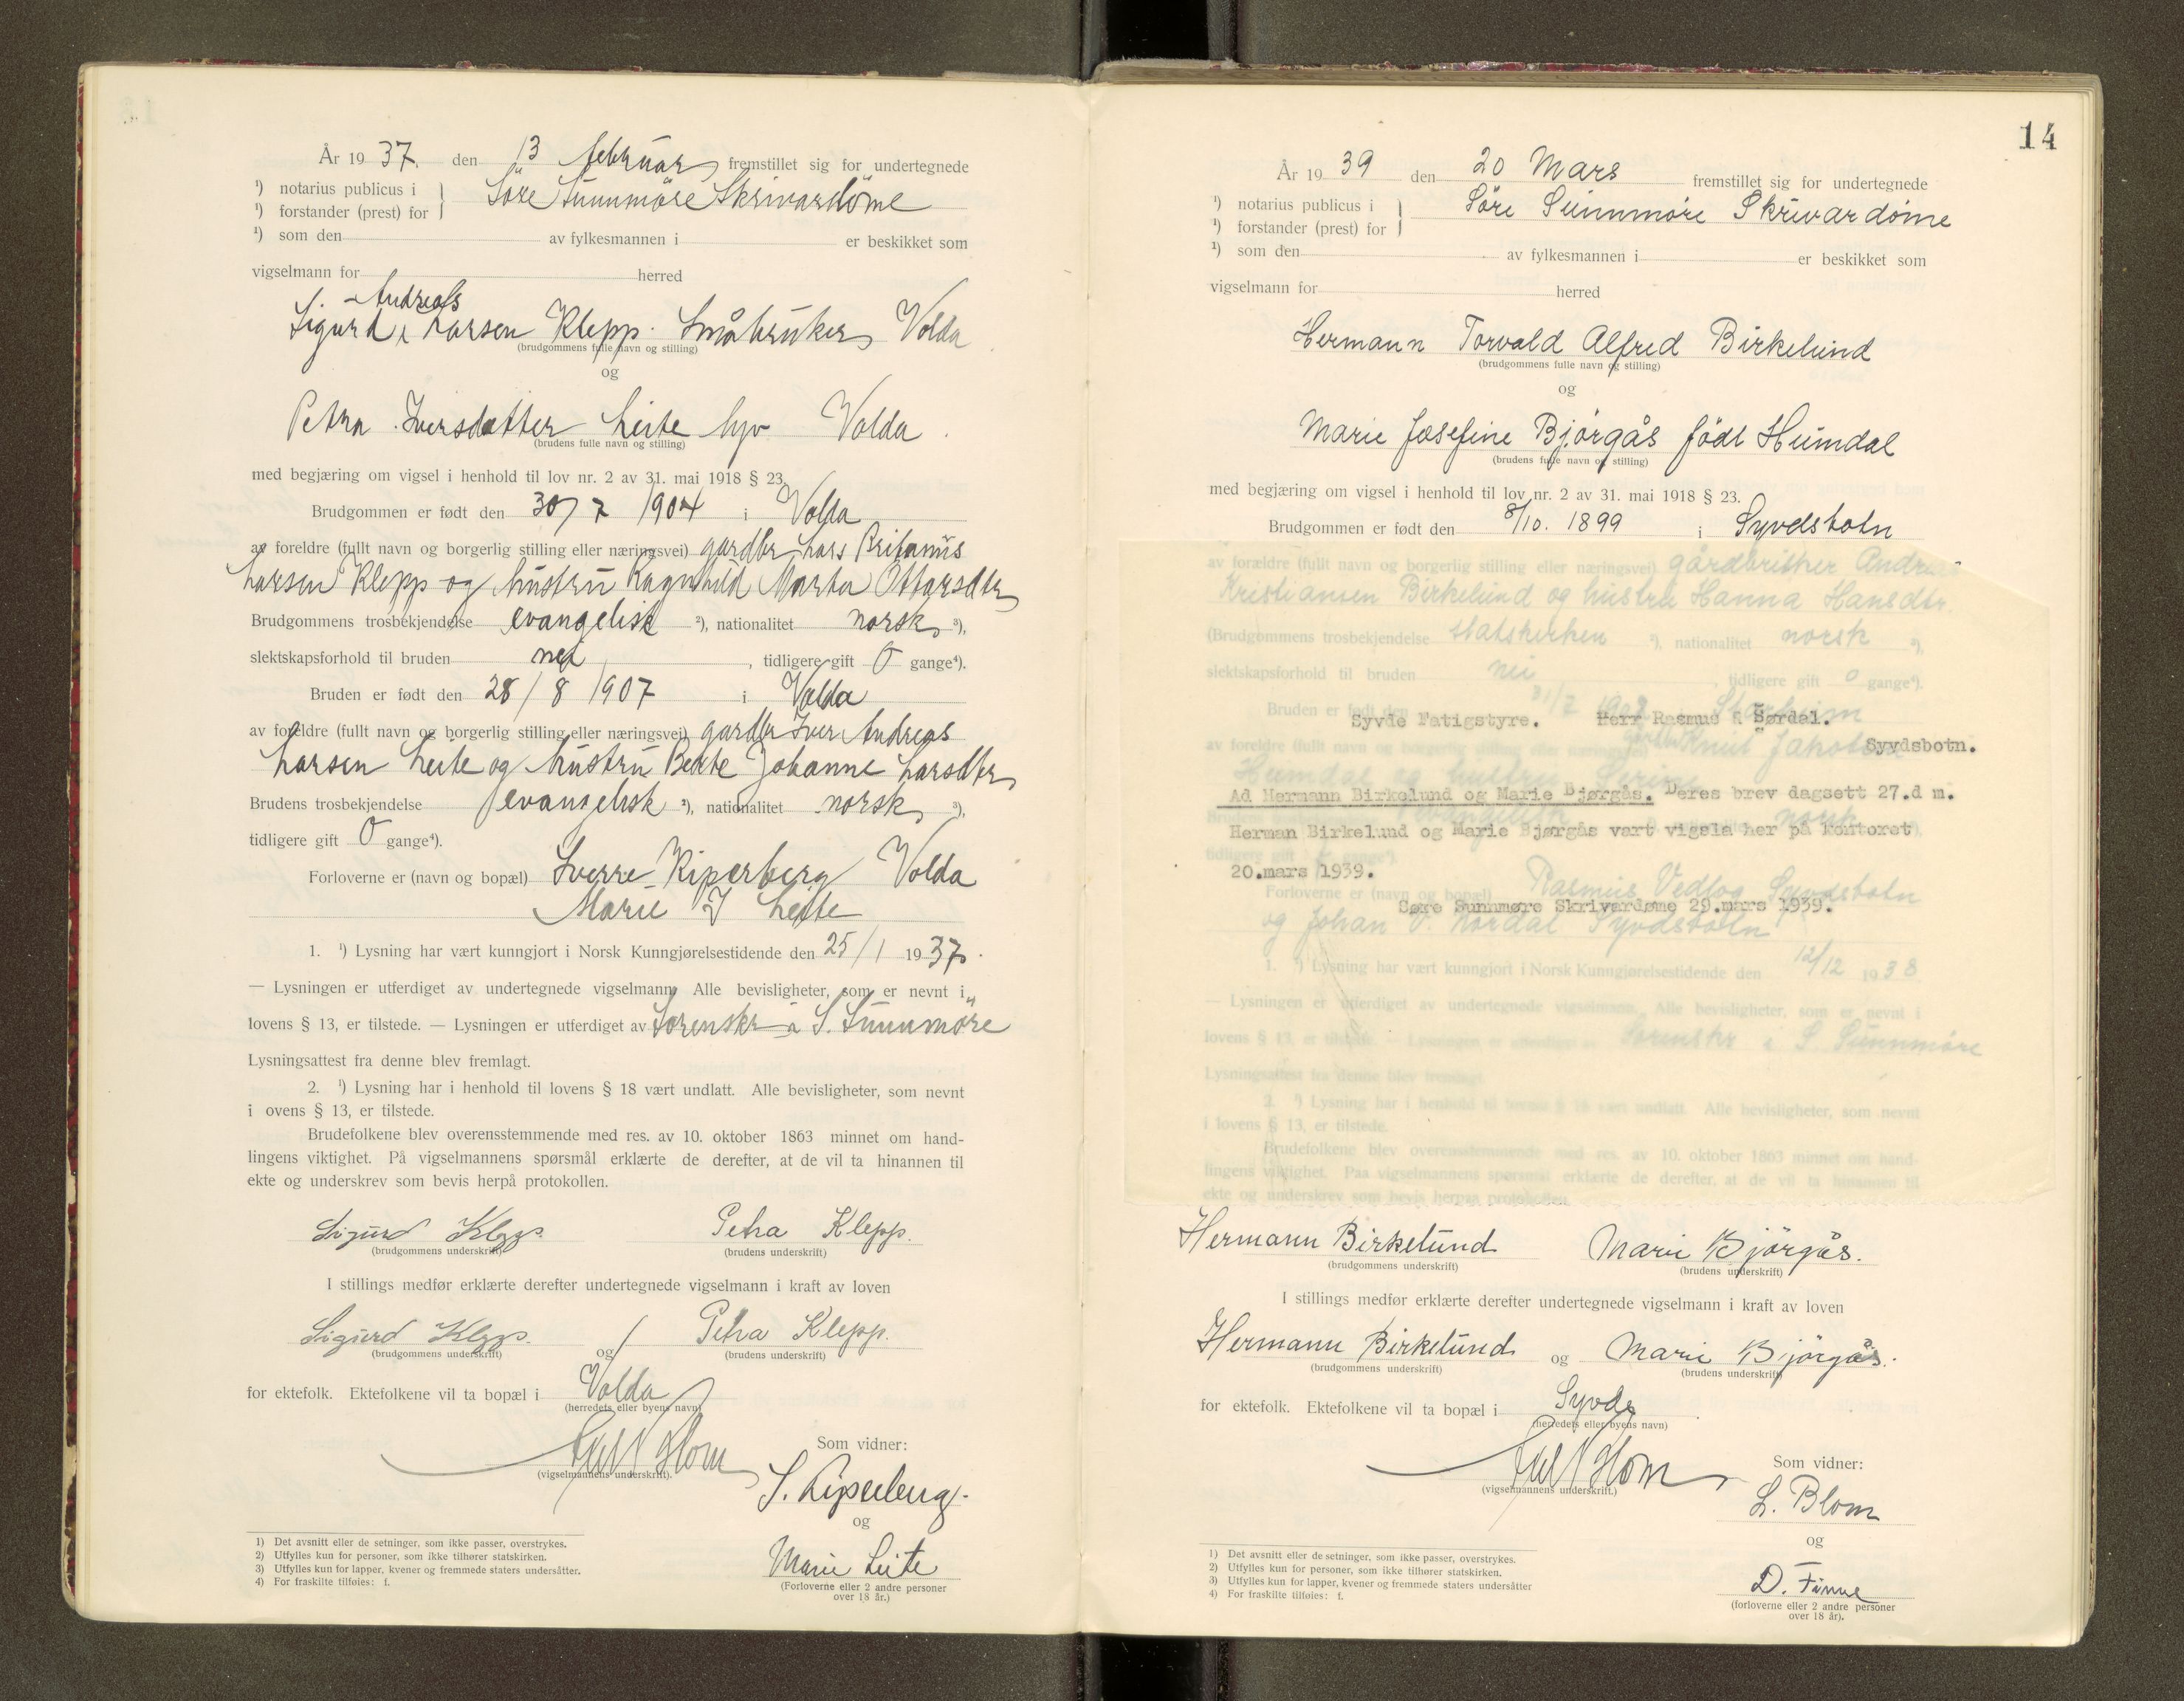 År 1937. den 13 februar fremstillet sig for undertegnede
¹) notarius publicus i
¹) forstander (prest) for
Söre Sunnmöre Skrivardöme
¹) som den av fylkesmannen i er beskikket som
vigselmann for herred
Andreas
Sigurd Larsen Klepp. Småbruker, Volda
(brudgommens fulle navn og stilling)
og
Petra Iversdatter Leite hjv Volda
(brudens fulle navn og stilling)
med begjæring om vigsel i henhold til lov nr. 2 av 31. mai 1918 § 23.
Brudgommen er født den 30/7 1904 i Volda
av foreldre (fullt navn og borgerlig stilling eller næringsvei) gardbr. Lars
Larsen Klepp og hustru Ragnhild Marta Ottarsdtr
Brudgommens trosbekjendelse evangelisk ²), nationalitet norsk ³),
slektskapsforhold til bruden nei, tidligere gift 0 gange⁴).
Bruden er født den 28/8 1907 i Volda
av foreldre (fullt navn og borgerlig stilling eller næringsvei) gardbr Iver Andreas
Larsen Leite og hustru Berte Johanne Larsdtr
Brudens trosbekjendelse evangelisk ²), nationalitet norsk ³),
tidligere gift 0 gange⁴).
Forloverne er (navn og bopæl) Sverre Kiperberg Volda
Marie I Leite
1. ¹) Lysning har vært kunngjort i Norsk Kunngjørelsestidende den 25/1 1937.
— Lysningen er utferdiget av undertegnede vigselmann. Alle bevisligheter, som er nevnt i
lovens § 13, er tilstede. — Lysningen er utferdiget av Sorenskr i S. Sunnmöre
Lysningsattest fra denne blev fremlagt.
2. ¹) Lysning har i henhold til lovens § 18 vært undlatt. Alle bevisligheter, som nevnt
i ovens § 13, er tilstede.
Brudefolkene blev overensstemmende med res. av 10. oktober 1863 minnet om hand-
lingens viktighet. På vigselmannens spørsmål erklærte de derefter, at de vil ta hinannen til
ekte og underskrev som bevis herpå protokollen.
Sigurd Klepp. Petra Klepp.
(brudgommens underskrift) (brudens underskrift)
I stillings medfør erklærte derefter undertegnede vigselmann i kraft av loven
Sigurd Klepp. og Petra Klepp.
(brudgommens underskrift) (brudens underskrift)
for ektefolk. Ektefolkene vil ta bopæl i Volda
(herredets eller byens navn)
Som vidner:
(vigselmannens underskrift).
S. Kiperberg.
og
Marie Leite
(Forloverne eller 2 andre personer
over 18 år.)
1) Det avsnitt eller de setninger, som ikke passer, overstrykes.
2) Utfylles kun for personer, som ikke tilhører statskirken.
3) Utfylles kun for lapper, kvener og fremmede staters undersåtter.
4) For fraskilte tilføies: f.
14
År 1939 den 20 Mars fremstillet sig for undertegnede
¹) notarius publicus i
¹) forstander (prest) for
Söre Sunnmöre Skrivardöme
¹) som den av fylkesmannen i er beskikket som
vigselmann for herred
Hermann Torvald Alfred Birkelund
(brudgommens fulle navn og stilling)
og
Marie Josefine Bjørgås född Humdal
(brudens fulle navn og stilling)
med begjæring om vigsel i henhold til lov nr. 2 av 31. mai 1918 § 23.
Brudgommen er født den 8/10. 1899 i Syvdsbotn
av foreldre (fullt navn og borgerlig stilling eller næringsvei) gårdbruker Andreas
Kristiansen Birkelund og hustru Hanna Hansdtr.
(Brudgommens trosbekjendelse statskirken ²), nationalitet norsk ³),
slektskapsforhold til bruden nei, tidligere gift 0 gange⁴).
Bruden er født den
Syvde Fatigstyre. Herr Rasmus R. Sørdal.
Syvdsbotn.
av foreldre (fullt navn og borgerlig stilling eller næringsvei) Knut Jakobsen
Humdal og hustru
Ad Hermann Birkelund og Marie Bjørgås. Deres brev dagsett 27.d m.
Herman Birkelund og Marie Bjørgås vart vigsla her på kontoret
20.mars 1939.
Søre Sunnmøre Skrivardøme 29.mars 1939.
Forloverne er (navn og bopæl) Rasmus Vedlog Syvdsbotn
og Johan V. Nordal Syvdsbotn
1. ¹) Lysning har vært kunngjort i Norsk Kunngjørelsestidende den 12/12 1938
— Lysningen er utferdiget av undertegnede vigselmann. Alle bevisligheter, som er nevnt i
lovens § 13, er tilstede. — Lysningen er utferdiget av Sorenskr i S. Sunnmöre
Lysningsattest fra denne blev fremlagt.
2. ¹) Lysning har i henhold til lovens § 18 vært undlatt. Alle bevisligheter, som nevnt
i lovens § 13, er tilstede.
Brudefolkene blev overensstemmende med res. av 10. oktober 1863 minnet om hand-
lingens viktighet. Paa vigselmannens spørsmål erklærte de derefter, at de vil ta hinannen til
ekte og underskrev som bevis herpaa protokollen.
Hermann Birkelund Marie Bjørgås.
(brudgommens underskrift) (brudens underskrift)
I stillings medfør erklærte derefter undertegnede vigselmann i kraft av loven
Hermann Birkelund og Marie Bjørgås.
(brudgommens underskrift) (brudens underskrift)
for ektefolk. Ektefolkene vil ta bopæl i Syvde
(herredets eller byens navn)
Som vidner:
(vigselmannens underskrift.)
L. Blom
og
D. Finne
(forloverne eller 2 andre personer
over 18 år).
1) Det avsnitt eller de setninger, som ikke passer, overstrykes.
2) Utfylles kun for personer, som ikke tilhører statskirken.
3) Utfylles kun for lapper, kvener og fremmede staters undersåtter
4) For fraskilte tilføies: f.